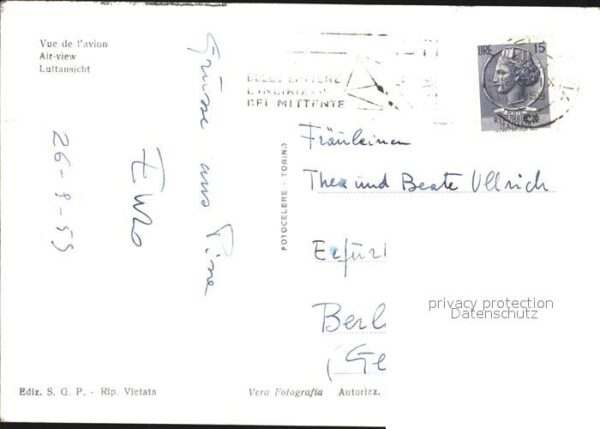 Vue de l'avion
Air-view
Luftansicht
Grüsse aus Pisa
26-9-59
FOTOCELERE - TORINO
LIRE 15
L'INDIRIZZO
DEL MITTENTE
Fräuleinen
Thea und Beate Ullrich
Erfur
Berl
(Ge
privacy protection
Datenschutz
Ediz. S. G. P. - Rip. Vietata
Vera Fotografia
Autorizz.